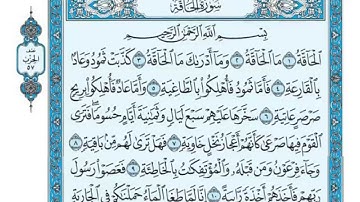 سُورَةُ الْحَاقَّةِ
نصف
الحزب
٥٧
بِسْمِ اللَّهِ الرَّحْمَٰنِ الرَّحِيمِ
الْحَاقَّةُ ١ مَا الْحَاقَّةُ ٢ وَمَا أَدْرَىٰكَ مَا الْحَاقَّةُ ٣ كَذَّبَتْ ثَمُودُ وَعَادٌ
بِالْقَارِعَةِ ٤ فَأَمَّا ثَمُودُ فَأُهْلِكُوا بِالطَّاغِيَةِ ٥ وَأَمَّا عَادٌ فَأُهْلِكُوا بِرِيحٍ
صَرْصَرٍ عَاتِيَةٍ ٦ سَخَّرَهَا عَلَيْهِمْ سَبْعَ لَيَالٍ وَثَمَٰنِيَةَ أَيَّامٍ حُسُومًا فَتَرَى
الْقَوْمَ فِيهَا صَرْعَىٰ كَأَنَّهُمْ أَعْجَازُ نَخْلٍ خَاوِيَةٍ ٧ فَهَلْ تَرَىٰ لَهُم مِّن بَاقِيَةٍ ٨
وَجَاءَ فِرْعَوْنُ وَمَن قَبْلَهُ وَالْمُؤْتَفِكَٰتُ بِالْخَاطِئَةِ ٩ فَعَصَوْا رَسُولَ
رَبِّهِمْ فَأَخَذَهُمْ أَخْذَةً رَّابِيَةً ١٠ إِنَّا لَمَّا طَغَا الْمَاءُ حَمَلْنَٰكُمْ فِي الْجَارِيَةِ